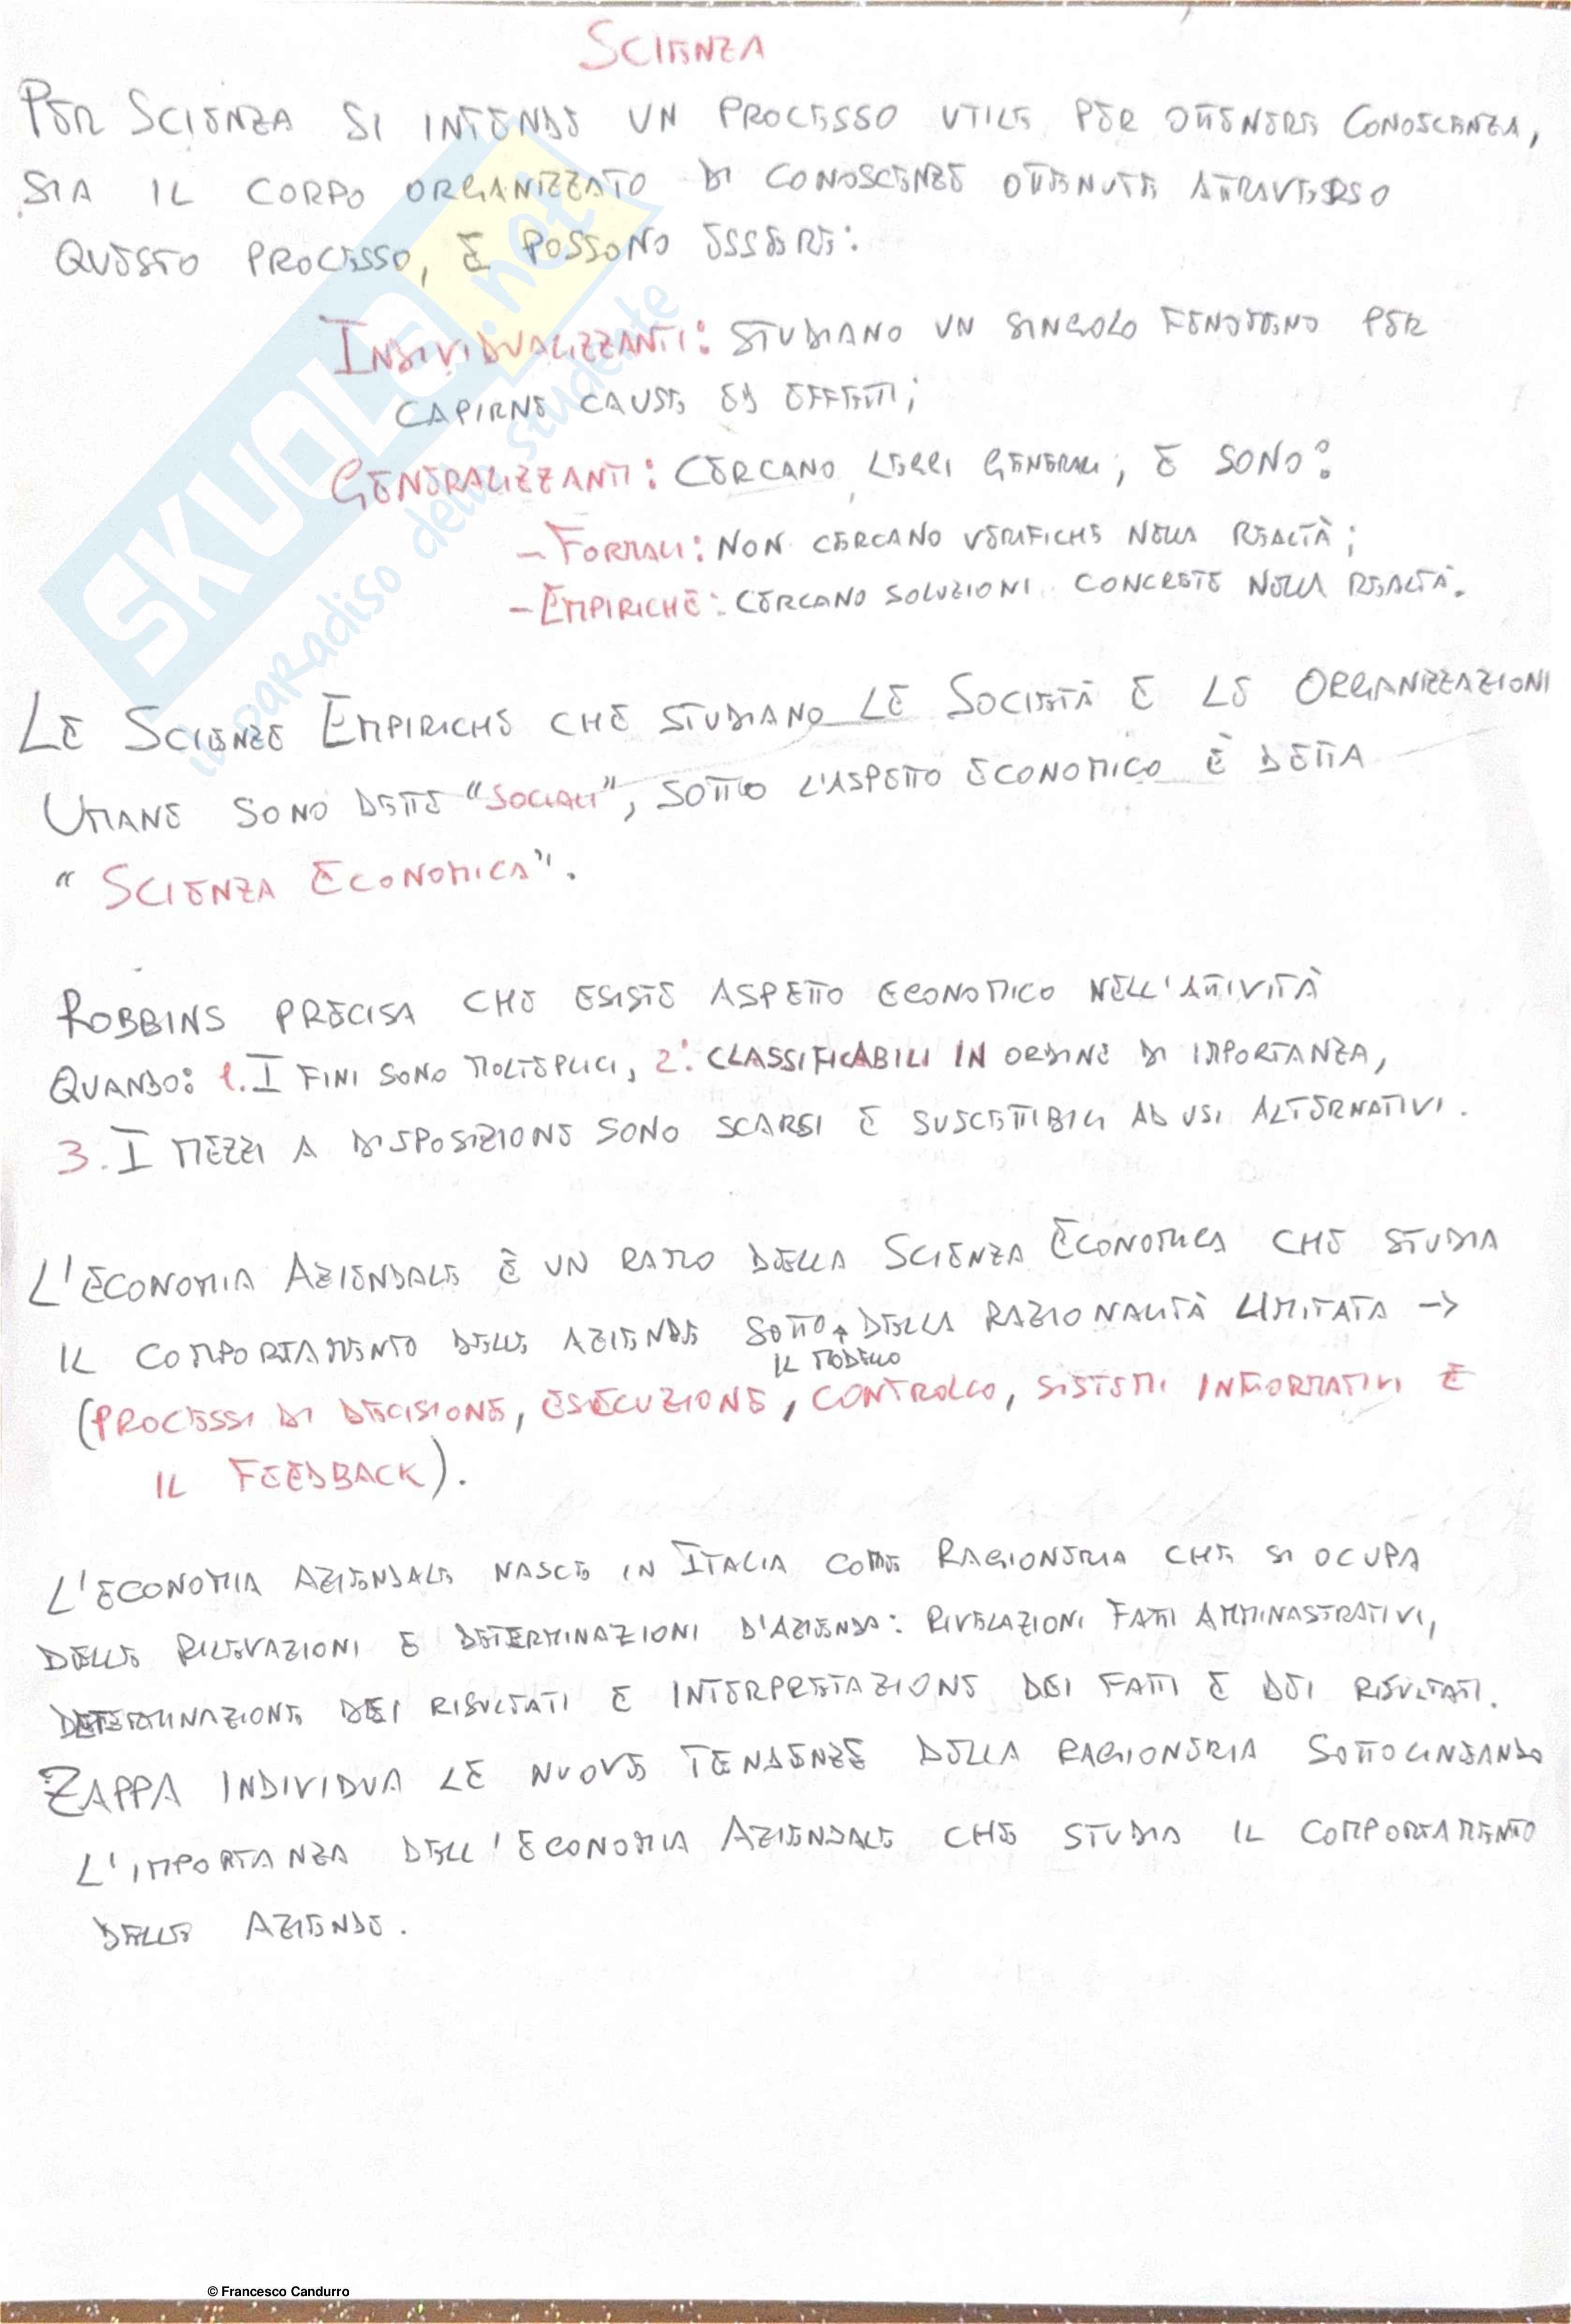 SCIENZA
PER SCIENZA SI INTENDE UN PROCESSO UTILE PER OTTENERE CONOSCENZA,
SIA IL CORPO ORGANIZZATO DI CONOSCENZE OTTENUTE ATTRAVERSO
QUESTO PROCESSO, E POSSONO ESSERE:
INDIVIDUALIZZANTI: STUDIANO UN SINGOLO FENOMENO PER
CAPIRNE CAUSE ED EFFETTI;
GENERALIZZANTI: CERCANO LEGGI GENERALI, E SONO:
- FORMALI: NON CERCANO VERIFICHE NELLA REALTÀ;
- EMPIRICHE: CERCANO SOLUZIONI CONCRETE NELLA REALTÀ.
LE SCIENZE EMPIRICHE CHE STUDIANO LE SOCIETÀ E LE ORGANIZZAZIONI
UMANE SONO DETTE "SOCIALI", SOTTO L'ASPETTO ECONOMICO È DETTA
"SCIENZA ECONOMICA".
ROBBINS PRECISA CHE ESISTE ASPETTO ECONOMICO NELL'ATTIVITÀ
QUANDO: 1. I FINI SONO MOLTEPLICI, 2. CLASSIFICABILI IN ORDINE DI IMPORTANZA,
3. I MEZZI A DISPOSIZIONE SONO SCARSI E SUSCETTIBILI AD USI ALTERNATIVI.
L'ECONOMIA AZIENDALE È UN RAMO DELLA SCIENZA ECONOMICA CHE STUDIA
IL COMPORTAMENTO DELLE AZIENDE SOTTO DELLA RAZIONALITÀ LIMITATA ->
IL MODELLO
(PROCESSI DI DECISIONE, ESECUZIONE, CONTROLLO, SISTEMI INFORMATIVI E
IL FEEDBACK).
L'ECONOMIA AZIENDALE NASCE IN ITALIA COME RAGIONERIA CHE SI OCUPA
DELLE RILEVAZIONI E DETERMINAZIONI D'AZIENDA: RIVELAZIONI FATTI AMMINASTRATIVI,
DETERMINAZIONE DEI RISULTATI E INTERPRETAZIONE DEI FATTI E DEI RISULTATI.
ZAPPA INDIVIDUA LE NUOVE TENDENZE DELLA RAGIONERIA SOTTOLINEANDO
L'IMPORTANZA DELL'ECONOMIA AZIENDALE CHE STUDIA IL COMPORTAMENTO
DELLE AZIENDE.
SKUOLA.net
il paradiso dello studente
© Francesco Candurro